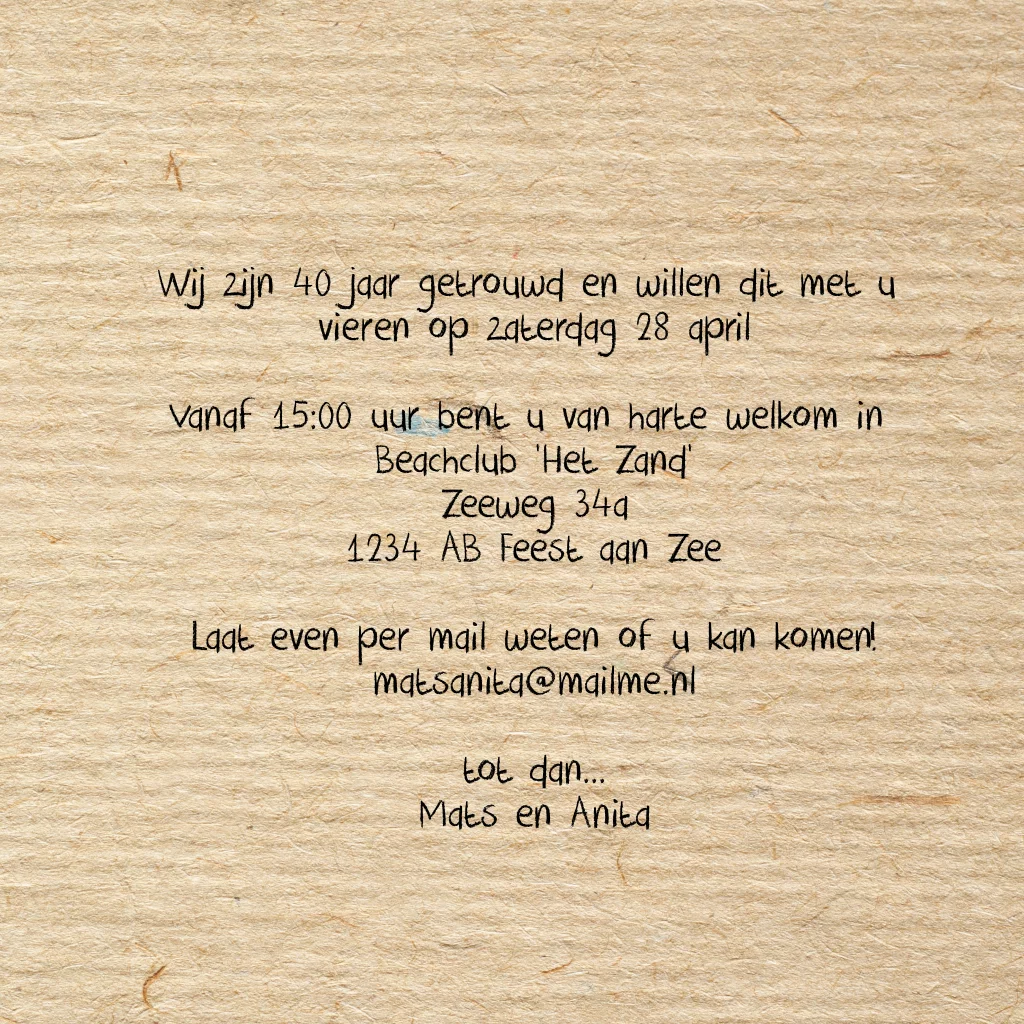 Wij zijn 40 jaar getrouwd en willen dit met u
vieren op zaterdag 28 april
Vanaf 15:00 uur bent u van harte welkom in
Beachclub 'Het Zand'
Zeeweg 34a
1234 AB Feest aan Zee
Laat even per mail weten of u kan komen!
matsanita@mailme.nl
tot dan...
Mats en Anita